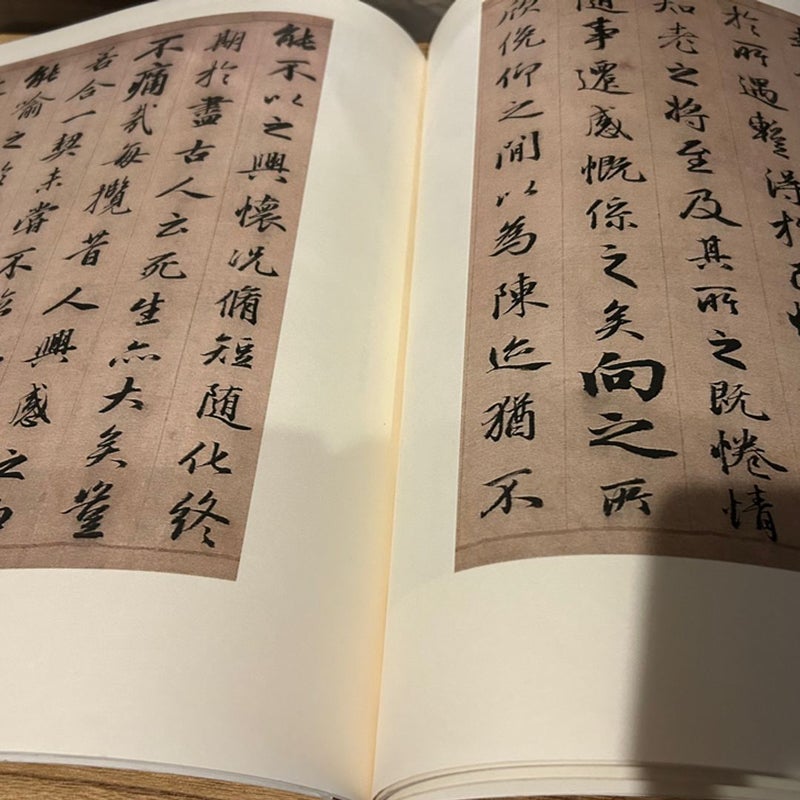 於所遇蹔得於
知老之將至及其所之既惓情
隨事遷感慨係之矣向之所
欣俛仰之間以為陳迹猶不
能不以之興懷況脩短隨化終
期於盡古人云死生亦大矣豈
不痛哉每攬昔人興感之由
若合一契未嘗不臨
能喻之於